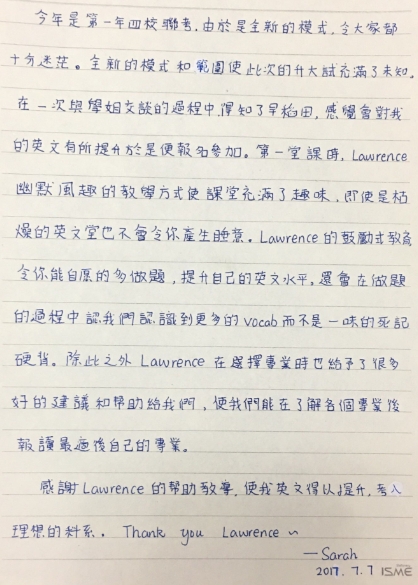 今年是第一年四校聯考，由於是全新的模式，令大家都
十分迷茫。全新的模式和範圍使此次的升大試充滿了未知。
在一次與學姐交談的過程中，得知了早稻田，感覺會對我
的英文有所提升於是便報名參加。第一堂課時，Lawrence
幽默風趣的教學方式使課堂充滿了趣味，即使是枯
燥的英文堂也不會令你產生睡意。Lawrence的鼓勵式教育
令你能自愿的多做題，提升自己的英文水平。還會在做題
的過程中認我們認識到更多的vocab而不是一味的死記
硬背。除此之外Lawrence在選擇專業時也給予了很多
好的建議和幫助給我們，使我們能在了解各個專業後
報讀最適後自己的專業。
感謝Lawrence的幫助教導，使我英文得以提升，考入
理想的科系。Thank you Lawrence ~
—Sarah
2017. 7. 7 ISME